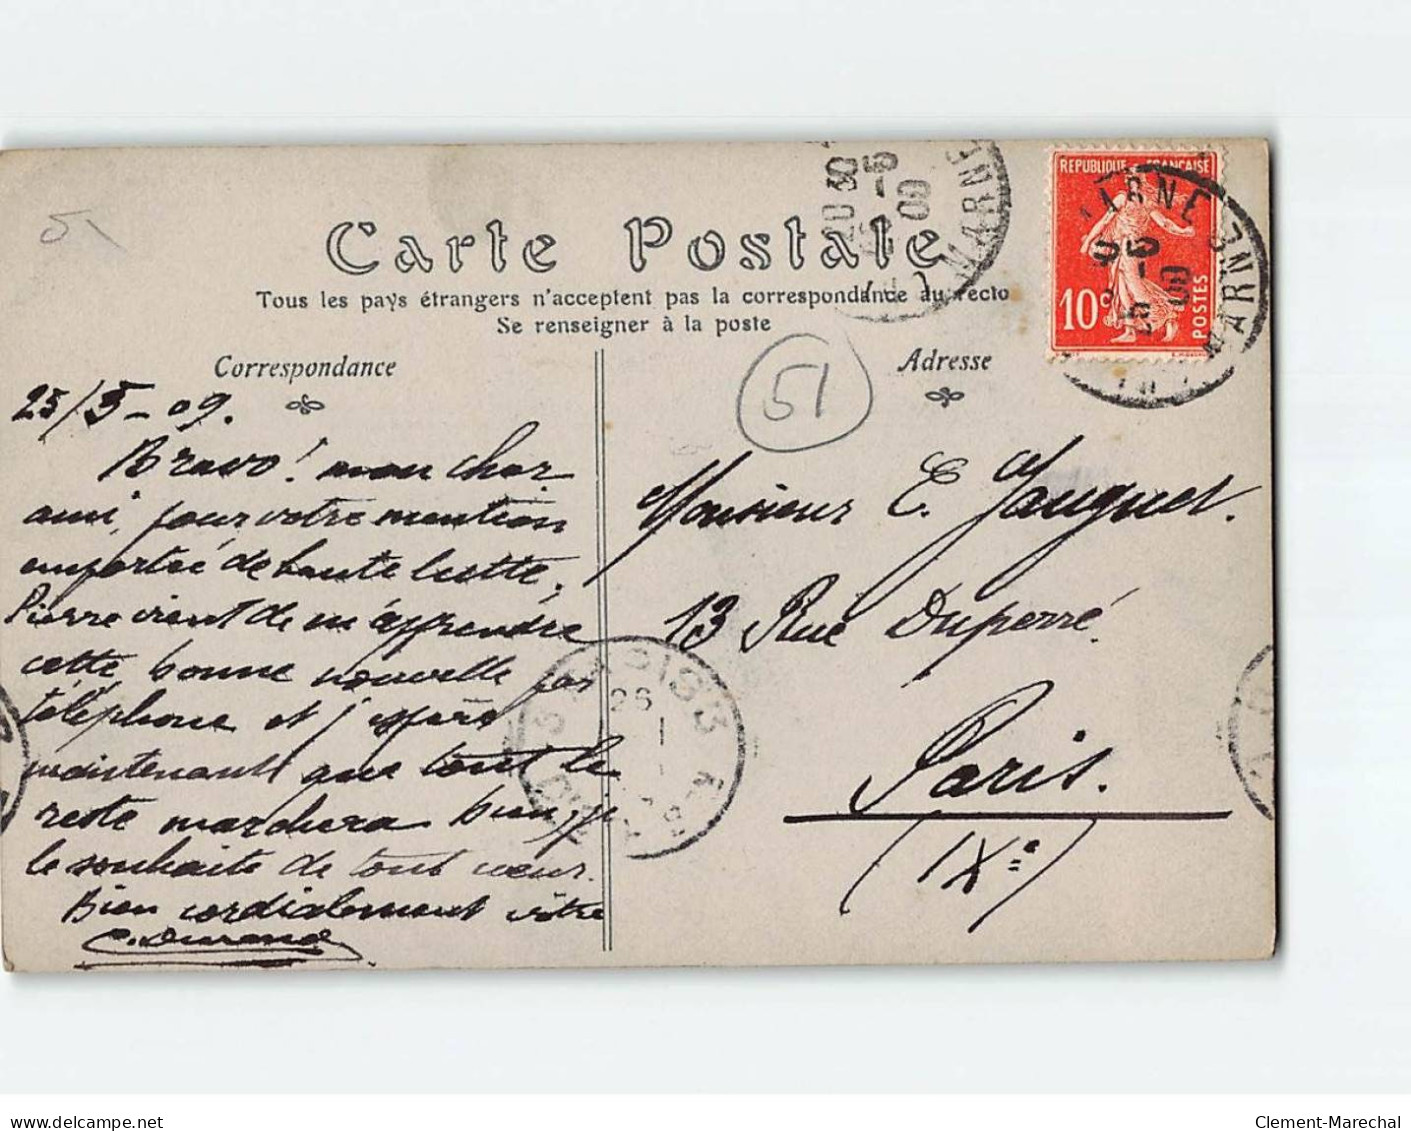 51
Carte Postale
Tous les pays étrangers n'acceptent pas la correspondance au recto
Se renseigner à la poste
Correspondance
25/5-09.
Bravo! mon cher
ami, pour votre mention
emportée de haute lutte.
Pierre vient de m'apprendre
cette bonne nouvelle par
téléphone et j'espère
maintenant que tout le
reste marchera bien, je
le souhaite de tout cœur.
Bien cordialement vôtre
C. Durand
51
Adresse
Monsieur E. Jauguet.
13 Rue Duperré.
Paris.
(IXe)
REPUBLIQUE FRANÇAISE
10c
POSTES
MARNE
MARNE
25 -5 09
PARIS 3
26
delcampe.net
Clement-Marechal